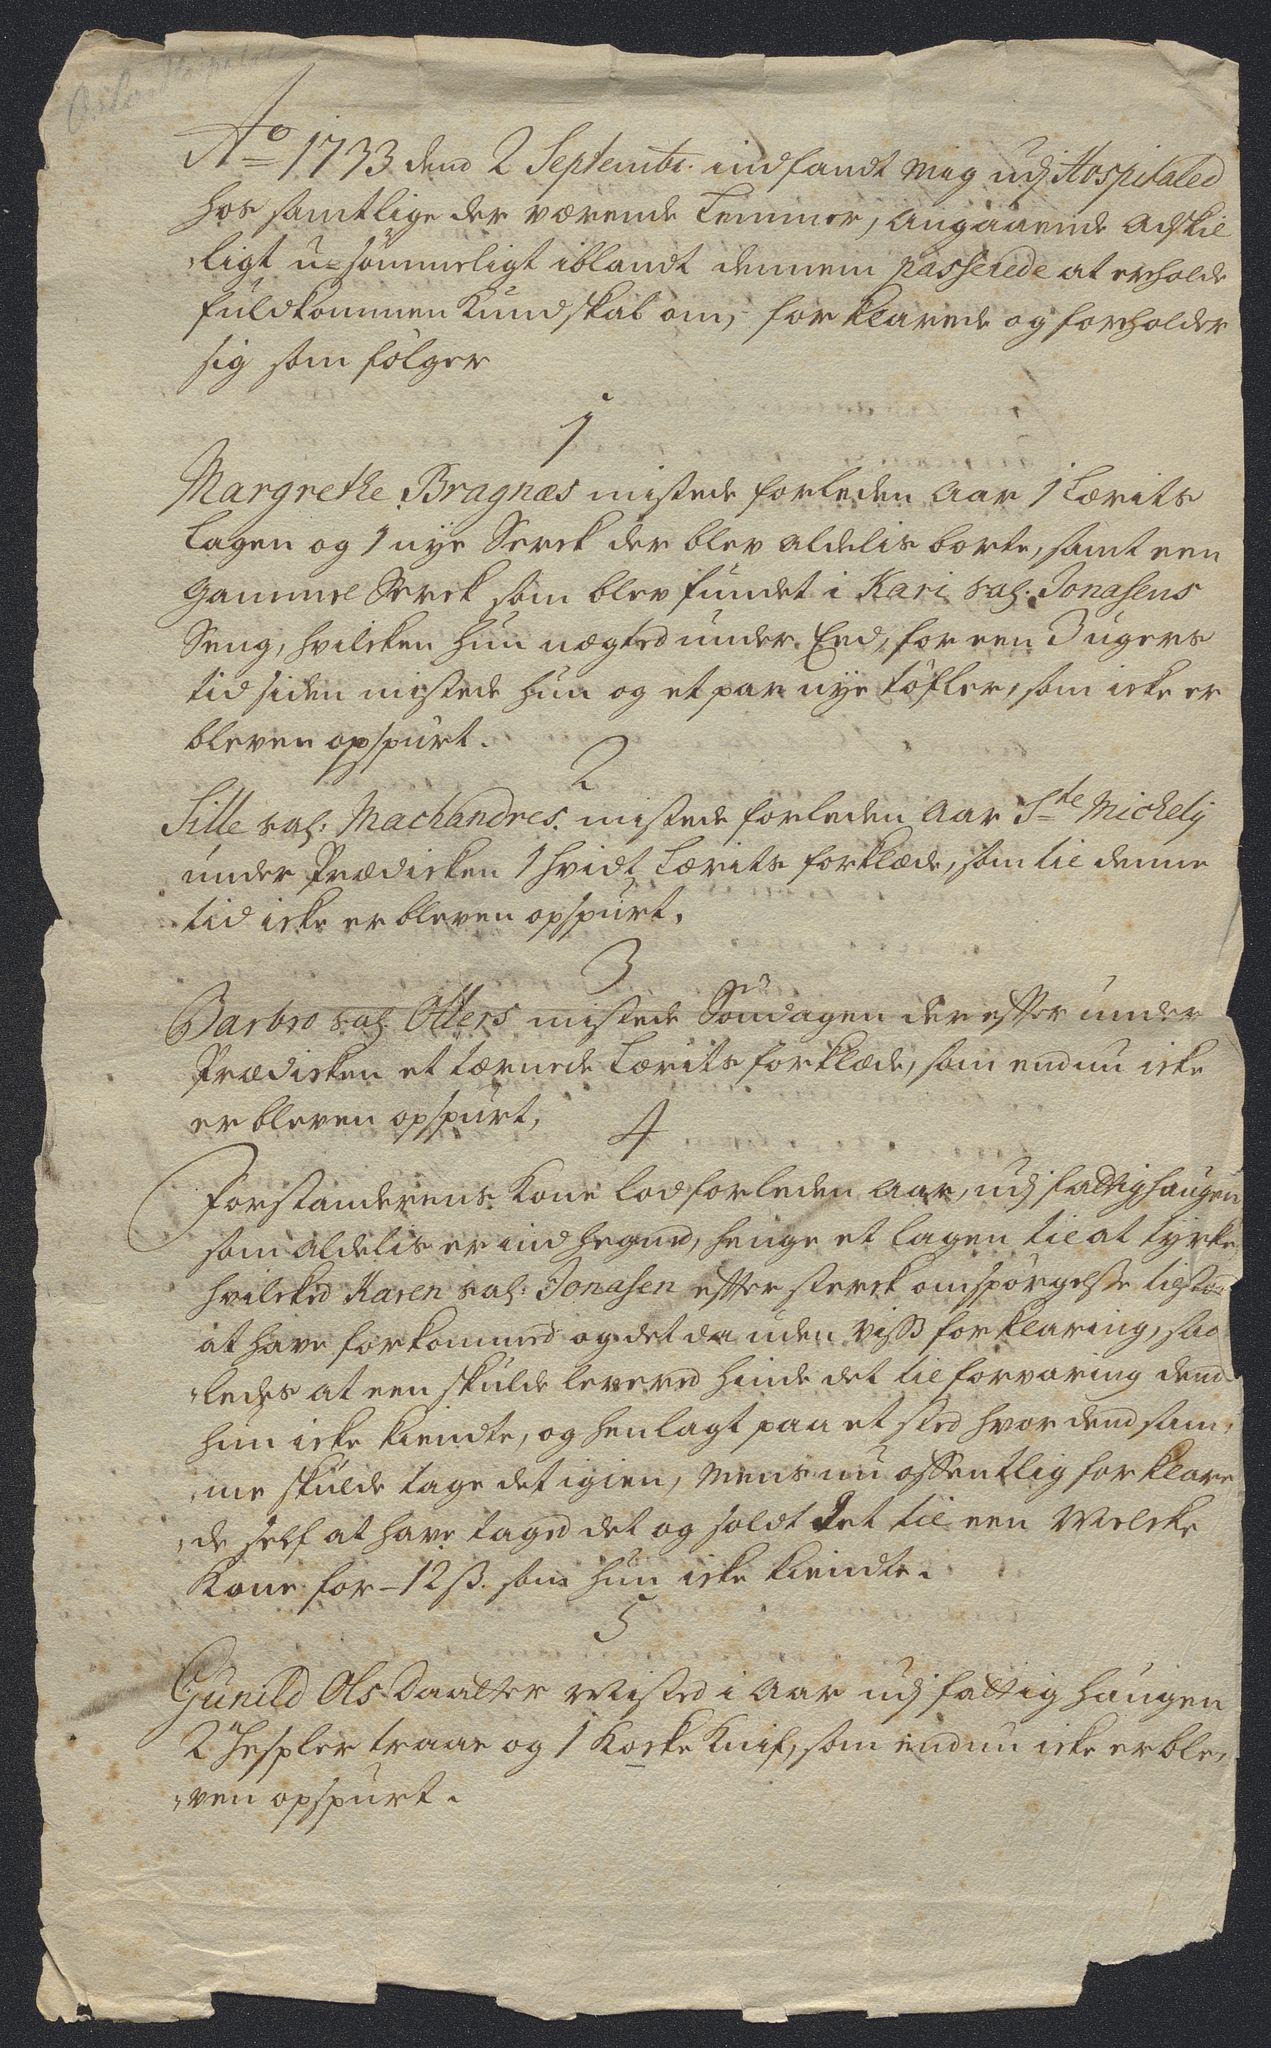 Oslo Hospital
Ao 1733 dend 2 Septembr. indfandt mig udj Hospitaled
hos samtlige der værende Lemmer, angaaende adskil
„ligt u-sømmeligt iblandt dennem passerede at erholde
fuldkommen Kundskab om, forklarede og forholder
sig som følger
1
Margrethe Bragnæs mistede forleden Aar 1 Lærits
Lagen og 1 nye Serck der blev aldelis borte, samt een
gammel Serck som blev fundet i Kari sal. Jonasens
Seng, hvilcken hun nægted under Eed, for een 3 ugers
tid siden mistede hun og et par nye tøfler, som icke er
bleven opspurt.
2
Sille sal: Machandres. mistede forleden Aar Ste Michely
under Prædicken 1 hvidt Lærits forklæde, som til denne
tid icke er bleven opspurt.
3
Barbro sal. Ollers mistede Søndagen derefter under
Prædicken et tærnede Lærits forklæde, som endnu icke
er bleven opspurt,
4
Forstanderens Kone lod forleden Aar, udj fattighaugen
som aldelis er indhegned, henge et lagen til at tyrke,
hvilcked Karen sal: Jonasen efter sterck omspørgelse tilstoe
at have forkommed og det da uden viss forklaring, saa
„ledes at een skulde levered hinde det til forvaring dend
hun icke kiendte, og henlagt paa et sted hvor dend sam,
„me skulde tage det igien, Mens nu offentlig forklare
„de self at have taged det og soldt det til een Melcke
Kone for – 12 ß. som hun icke kiendte.
5
Gunild Ols Daatter Misted i Aar udj fattig haugen
2 hespler traae og 1 Kocke Knif, som endnu icke er ble,
„ven opspurt.